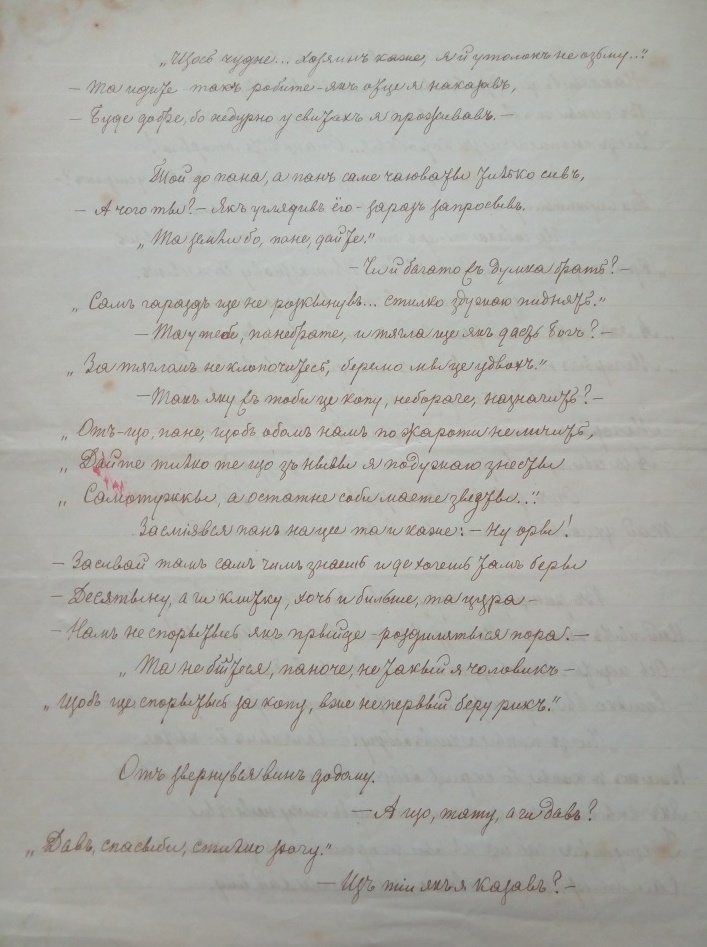 „Щось чудне... хозяинъ каже, я й утолокъ не озьму..."
— Та идите такъ робите - якъ оце я наказавъ,
— Буде добре, бо недурно у свитахъ я проживавъ. —
Той до пана, а панъ саме чаювати тилько сивъ,
— А чого ты? — Якъ углядивъ ёго - заразъ запросывъ.
„Та земли бо, пане, дайте."
— Чи й багато въ думка брать? —
„Самъ гараздъ ще не розквынувъ... стилко здужаю пиднять."
— Та у тебе, панебрате, и тягла ще якъ дасть Богъ? —
„За тягломъ не клопочитесь, беремо мы це удвохъ."
— Такъ яку въ тоби це копу, небораче, назначить? —
„Отъ-що, пане, щобъ обомъ намъ по жароти не личить,
„Дайте тилько те що зъ нывы я подужаю знесты
„Самотужкы, а остатне соби маете звезты..."
Засміявся панъ на це та и каже: — Ну оры!
— Засивай тамъ самъ чимъ знаешъ и де хочешъ тамъ беры
— Десятыну, а чи клитку, хочъ и бильше, та цура —
— Намъ не спорытысь якъ прыйде - роздилятыся пора. —
„Та не бійтеся, паноче, не такый я чоловикъ —
„Щобъ ще спорытысь за копу, вже не первый беру рикъ."
Отъ звернувся винъ додому.
— А що, тату, а чи давъ?
„Давъ, спасыби, стилько хочу."
— Изъ тіи якъ я казавъ? —